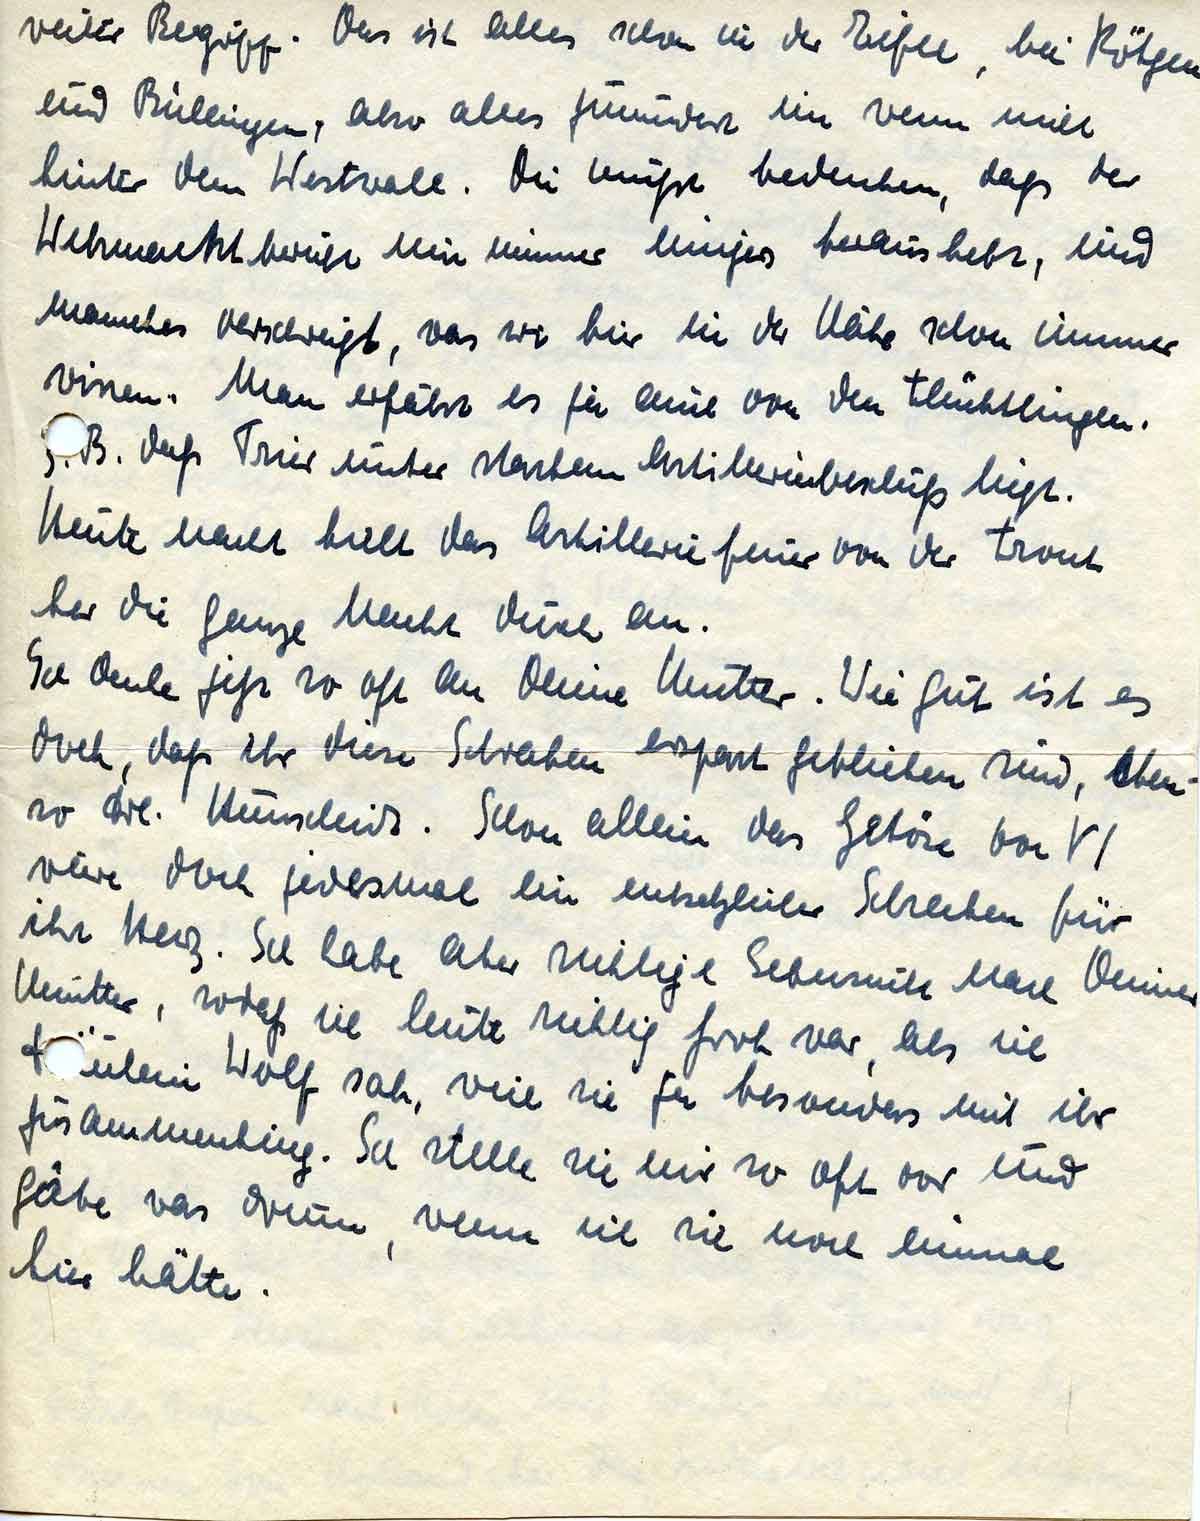 weiter Begriff. Das ist alles schon in der Eifel, bei Rötgen
und Büllingen, also alles zumindest in wenn nicht
hinter dem Westwall. Du mußt bedenken, daß der
Wehrmachtbericht nur immer einiges heraushebt, und
manches verschweigt, was wir hier in der Nähe schon immer
wissen. Man erfährt es ja auch von den Flüchtlingen.
z.B. daß Trier unter starkem Artilleriebeschuß liegt.
Heute Nacht hielt das Artilleriefeuer von der Front
her die ganze Nacht durch an.
Ich denke jetzt so oft an Deine Mutter. Wie gut ist es
doch, daß ihr diese Schrecken erspart geblieben sind, eben-
so Frl. Hünscheidt. Schon allein das Getöse von V1
wäre doch jedesmal ein entsetzlicher Schrecken für
ihr Herz. Ich habe aber richtige Sehnsucht nach Deiner
Mutter, sodaß ich heute richtig froh war, als ich
Fräulein Wolf sah, weil sie ja besonders mit ihr
zusammenhing. Ich stelle sie mir so oft vor und
gäbe was drum, wenn ich sie noch einmal
hier hätte.